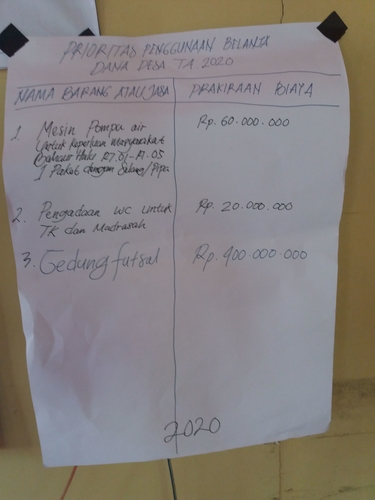 PRIORITAS PENGGUNAAN BELANJA
DANA DESA TA 2020
NAMA BARANG ATAU JASA
PRAKIRAAN BIAYA
1 Mesin Pompa air
Rp. 60.000.000
untuk keperluan masyarakat
Hulu RT.01-RT.05
1 Paket dengan Selang/Pipa
2. Pengadaan WC untuk
Rp. 20.000.000
TK dan Madrasah
3. Gedung futsal
Rp. 400.000.000
2020